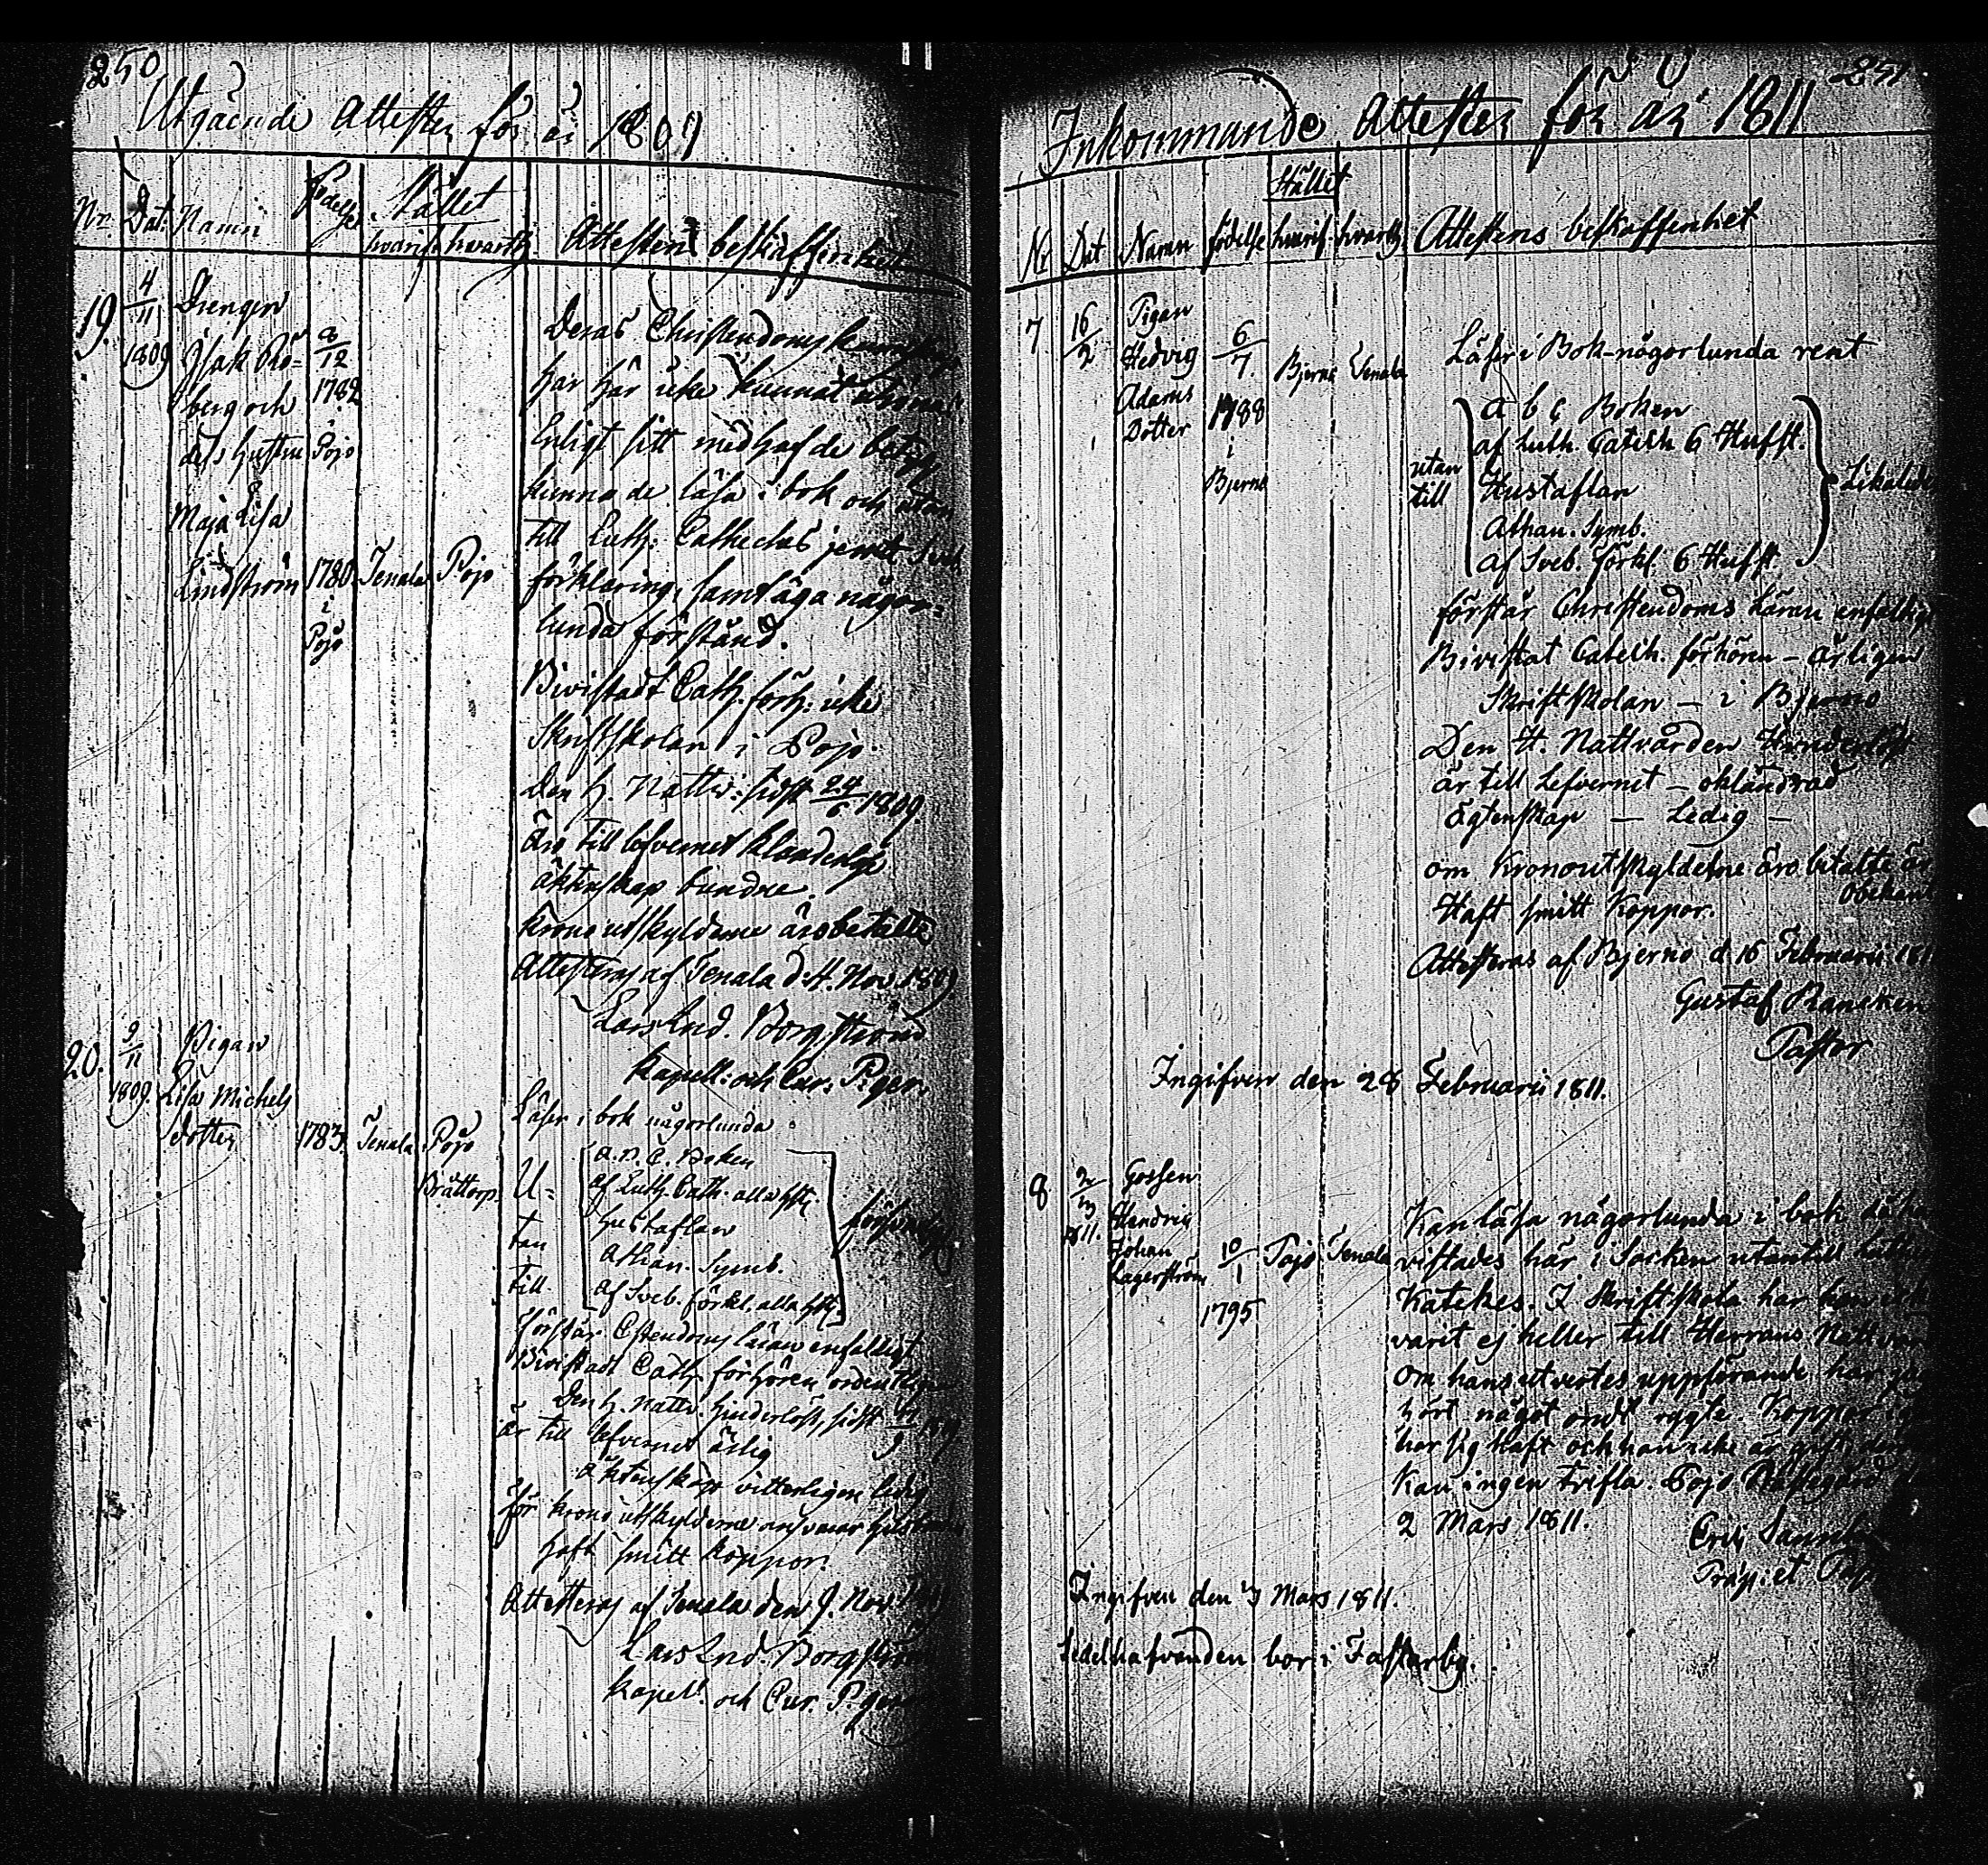 250
Utgående Attester för år 1809
Nr. Dat: Namn Födelse Stället hvarifr. hvarth. Attestens beskaffenhet
19. 4/11 1809 Drengen
Isak Röd=
berg och
dess hustru
Maja Lisa
Lindström
8/12
1782
i
Pojo
1780
i
Pojo
Tenala Pojo
Deras Christendoms
har här icke kunnat
Enligt sitt medhafde
kunna de läsa i bok och utan
till Luth: Catheches jemte Sveb.
förklaring, samt äga någor=
lunda förstånd.
Bivistadt Cath. förh: icke
Skriftskolan i Pojo.
Den H. Nattv: sidst 24/6 1809
Äro till lefvernet klanderlöse
äktenskap bundne.
Krono utskylderne äro betalte
Attesteras af Tenala d. 4. Nov. 1809
Lars Lnd. Borgström
Kapell: och Cur. P. ger.
20. 9/11 1809. Pigan
Lisa Michels
dotter 1783. Tenala Pojo
Brättorp
Läser i bok någorlunda
U=
tan
till
a. b. c. Boken
af Luth. Cath. alla hft.
Hustaflan
Athan. Symb.
af Sveb. förkl. alla hft.
Förstår Chstendoms läran enfaldigt
Bivistadt Cath. förhören ordentligen
Den H. Nattv. hinderlöst, sidst
är till lefvernet ärlig
äktenskap vitterligen ledig
för krono utskylderne ansvarar
haft smitt koppor.
Attesteras af Tenala den 9. Nov.
Lars Lnd. Borgström
Kapell. och Cur. P. ger.
251
Inkommande Attester för år 1811
Nr Dat Namn födelse Stället hvarifr. hvarth. Attestens beskaffenhet
7 16/2 Pigan
Hedvig
Adams
Dotter
6/7.
1788
i
Bjerno
Bjerno Tenala
Läser i Bok - någorlunda rent
utan
till
a b c Boken
af Luth. Catech. 6 Hufst.
Hustaflan
Athan. Symb.
af Sveb. förkl. 6 Hufst.
Likaledes
förstår Christendoms Läran enfaldigt
Bivistat Catech. förhören - årligen
Skriftskolan - i Bjerno
Den H. Nattvården Hinderlöst
är till Lefvernet - oklandrad
Ägtenskap - Ledig -
om Kronoutskylderne äro betalte är
obekant
Haft smitt Koppor.
Attesteras af Bjerno d 16 Februarii 1811
Gustaf Rancken
Pastor
Ingifven den 28 Februarii 1811.
8 2/3 1811. Gossen
Hendric
Johan
Lagerström
10/1
1795
Pojo Tenala
Kan läsa någorlunda i bok då han
vistades här i Socken utantill
Katekes. I Skriftskola har han icke
varit ej heller till Herrans Nattvard
Om hans utvertes uppförande har jag
hört något ondt rygte. Koppor
har sig haft och han icke är gift
kan ingen trifla. Pojo Prestegård
2 Mars 1811.
Eric
Præp: et
Ingifven den 3 Mars 1811.
Sedelhafvanden bor i Fastarby.